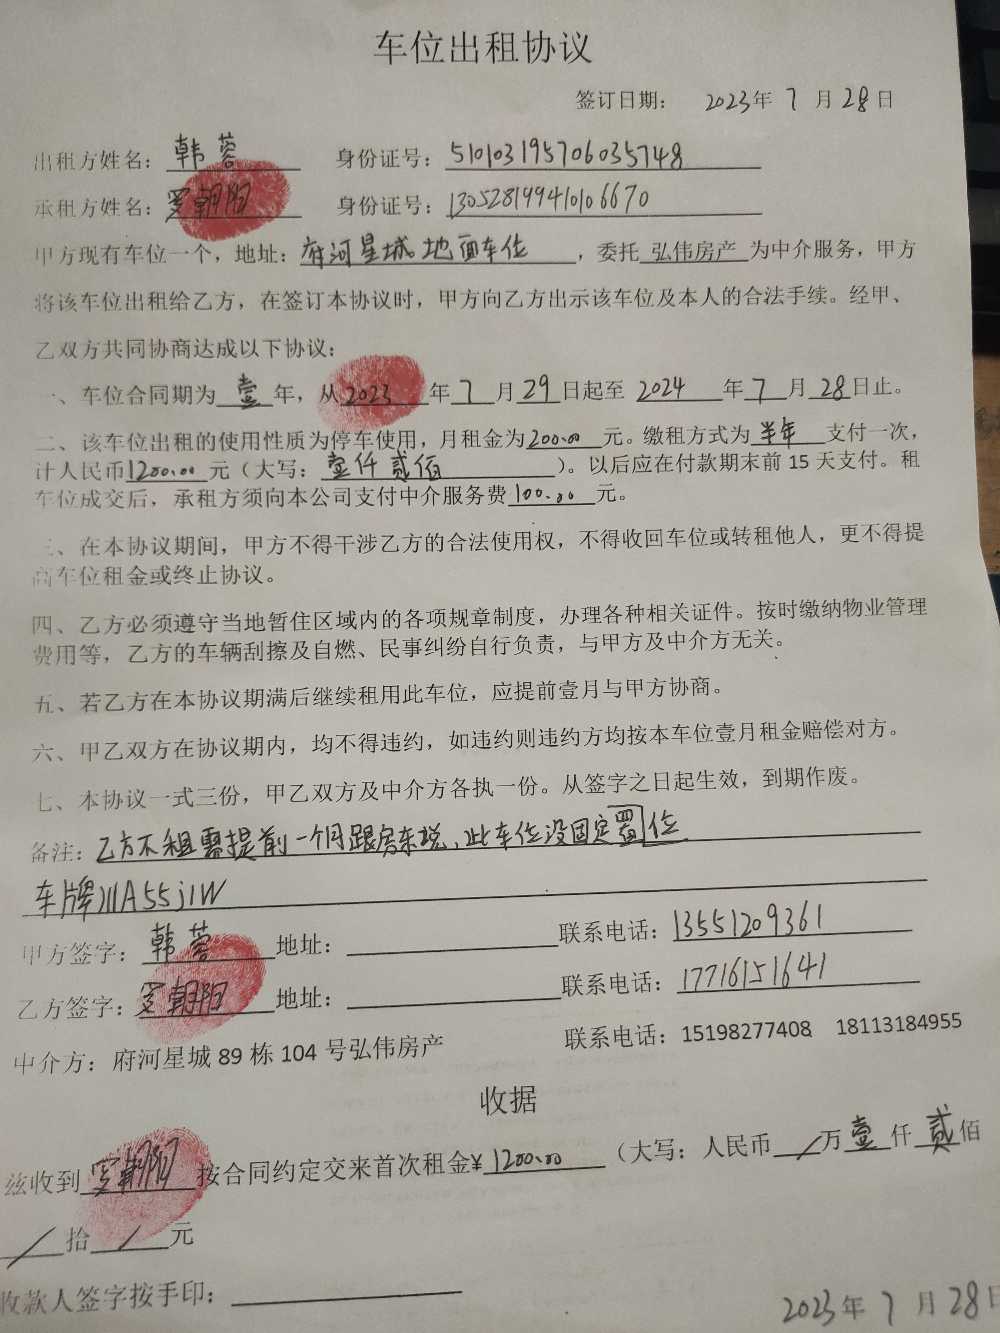 车位出租协议
签订日期： 2023年 7 月 28 日
出租方姓名：韩蓉 身份证号：510103195706035748
承租方姓名：罗朝阳 身份证号：130528199410106670
甲方现有车位一个，地址：府河星城地面车位，委托 弘伟房产 为中介服务，甲方
将该车位出租给乙方，在签订本协议时，甲方向乙方出示该车位及本人的合法手续。经甲、
乙双方共同协商达成以下协议：
一、车位合同期为 壹 年，从2023 年 7 月 29 日起至 2024 年 7 月 28 日止。
二、该车位出租的使用性质为停车使用，月租金为200.00 元。缴租方式为 半年 支付一次，
计人民币1200.00 元（大写：壹仟贰佰 ）。以后应在付款期末前 15 天支付。租
车位成交后，承租方须向本公司支付中介服务费 100.00 元。
三、在本协议期间，甲方不得干涉乙方的合法使用权，不得收回车位或转租他人，更不得提
高车位租金或终止协议。
四、乙方必须遵守当地暂住区域内的各项规章制度，办理各种相关证件。按时缴纳物业管理
费用等，乙方的车辆刮擦及自燃、民事纠纷自行负责，与甲方及中介方无关。
五、若乙方在本协议期满后继续租用此车位，应提前壹月与甲方协商。
六、甲乙双方在协议期内，均不得违约，如违约则违约方均按本车位壹月租金赔偿对方。
七、本协议一式三份，甲乙双方及中介方各执一份。从签字之日起生效，到期作废。
备注：乙方不租需提前一个月跟房东说、此车位没固定位
车牌川A55J1W
甲方签字：韩蓉 地址： 联系电话：13551209361
乙方签字：罗朝阳 地址： 联系电话：17716151641
中介方：府河星城 89 栋 104 号弘伟房产 联系电话：15198277408 18113184955
收据
兹收到罗朝阳按合同约定交来首次租金¥1200.00（大写：人民币 / 万壹仟贰佰
/ 拾 / 元
收款人签字按手印：
2023 年 7 月 28 日